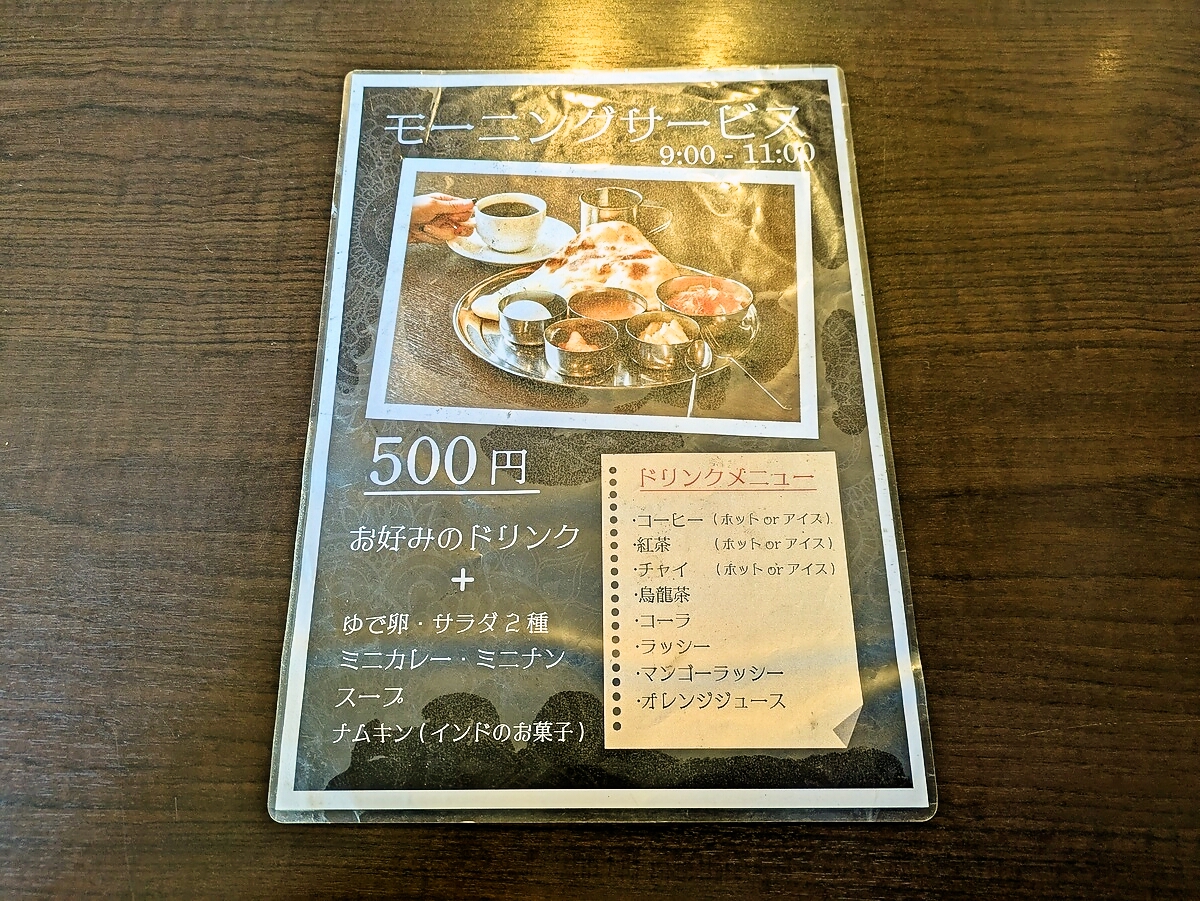 モーニングサービス
9:00 - 11:00
500円
お好みのドリンク
+
ゆで卵・サラダ2種
ミニカレー・ミニナン
スープ
ナムキン(インドのお菓子)
ドリンクメニュー
・コーヒー (ホット or アイス)
・紅茶 (ホット or アイス)
・チャイ (ホット or アイス)
・烏龍茶
・コーラ
・ラッシー
・マンゴーラッシー
・オレンジジュース